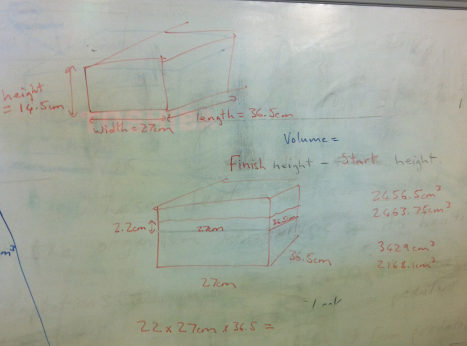 height
= 14.5cm
width = 27cm
length = 36.5cm
Volume =
Finish height - Start height
2.2cm
27cm
36.5cm
36.5cm
27cm
2456.5cm³
2463.75cm³
3629cm³
2168.1cm³
22 x 27cm x 36.5 =